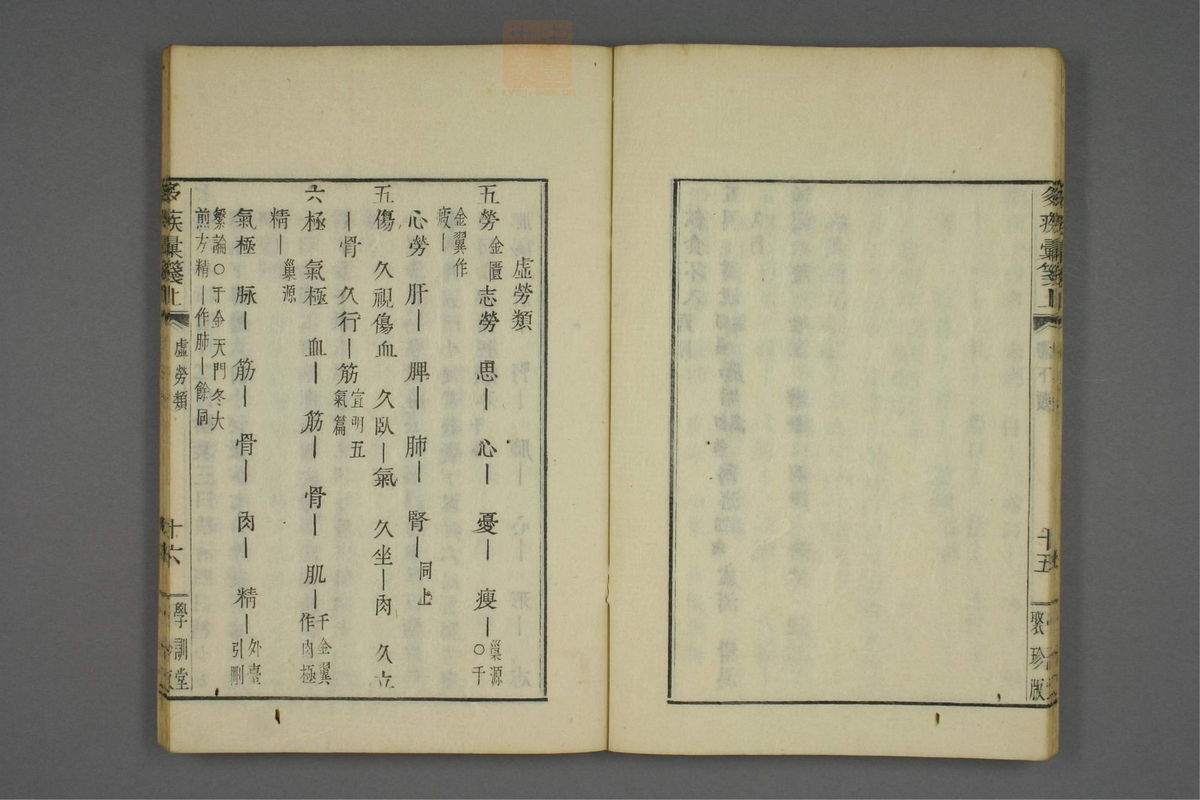 十五
聚珍版
虛勞類
五勞金匱志勞 思｜ 心｜ 憂｜ 瘦｜巢源○千
金翼作疲｜
心勞 肝｜ 脾｜ 肺｜ 腎｜同上
五傷 久視傷血 久臥｜氣 久坐｜肉 久立
骨 久行｜筋宣明五氣篇
六極 氣極 血｜ 筋｜ 骨｜ 肌｜千金翼作肉極
精｜巢源
氣極 脉｜ 筋｜ 骨｜ 肉｜ 精｜外臺引刪
繁論○千金天門冬大煎方精｜作肺｜餘同
彙箋上
虛勞類
十六
學訓堂